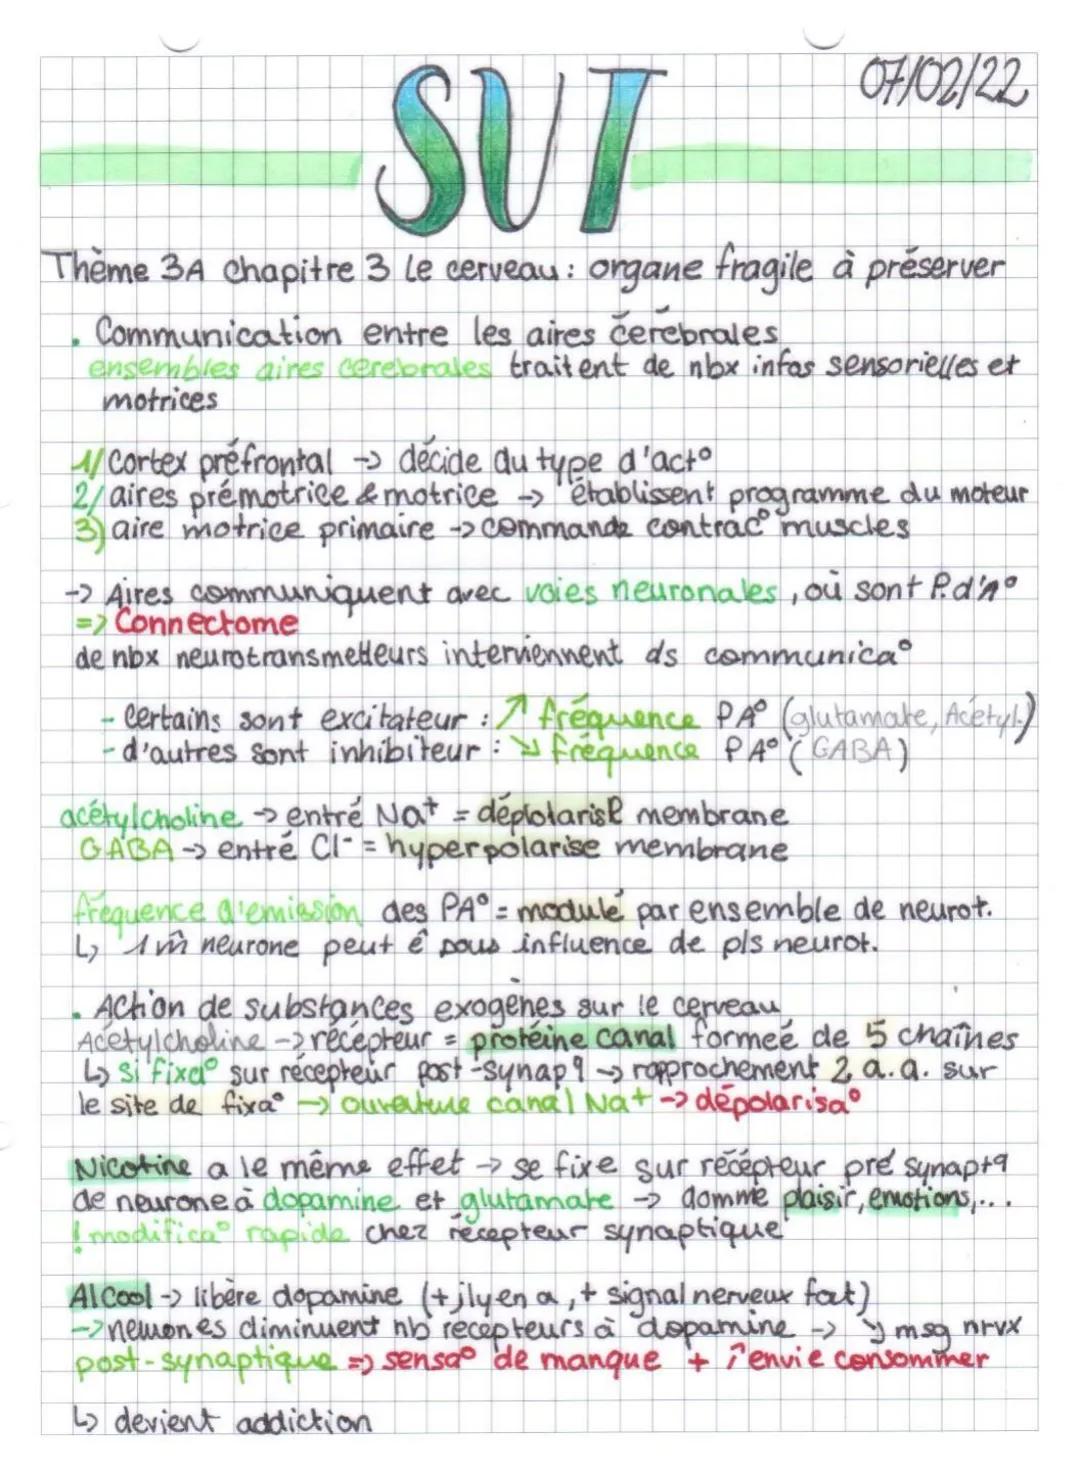 SVT
07/02/22
Thème 3A chapitre 3 Le cerveau : organe fragile à préserver
. Communication entre les aires cérébrales
ensembles aires cérébrales traitent de nbx infos sensorielles et
motrices
1/ Cortex préfrontal -> décide du type d'act°
2/ aires prémotrice & motrice -> établissent programme du moteur
3) aire motrice primaire -> commande contrac° muscles
-> Aires communiquent avec voies neuronales, où sont P.d'a°
=> Connectome
de nbx neurotransmetteurs interviennent ds communica°
- certains sont excitateur : ↗ fréquence PA° (glutamate, Acétyl.)
- d'autres sont inhibiteur : ↘ fréquence PA° (GABA)
acétylcholine -> entré Na+ = dépolarise membrane
GABA -> entré Cl- = hyperpolarise membrane
fréquence d'émission des PA° = modulé par ensemble de neurot.
↳ 1 m̂ neurone peut ê sous influence de pls neurot.
. Action de substances exogènes sur le cerveau
Acétylcholine -> récépteur = protéine canal formeé de 5 chaînes
↳ si fixa° sur récépteur post-synapq -> rapprochement 2 a.a. sur
le site de fixa° -> ouverture canal Na+ -> dépolarisa°
Nicotine a le même effet -> se fixe sur récépteur pré synaptq
de neurone à dopamine et glutamate -> domme plaisir, émotions,...
! modifica° rapide chez récepteur synaptique
Alcool -> libère dopamine (+ jlyen a, + signal nerveux fort)
-> neurones diminuent nb récepteurs à dopamine -> ↘ msg nrvx
post-synaptique => sensa° de manque + ↗ envie consommer
↳ devient addiction